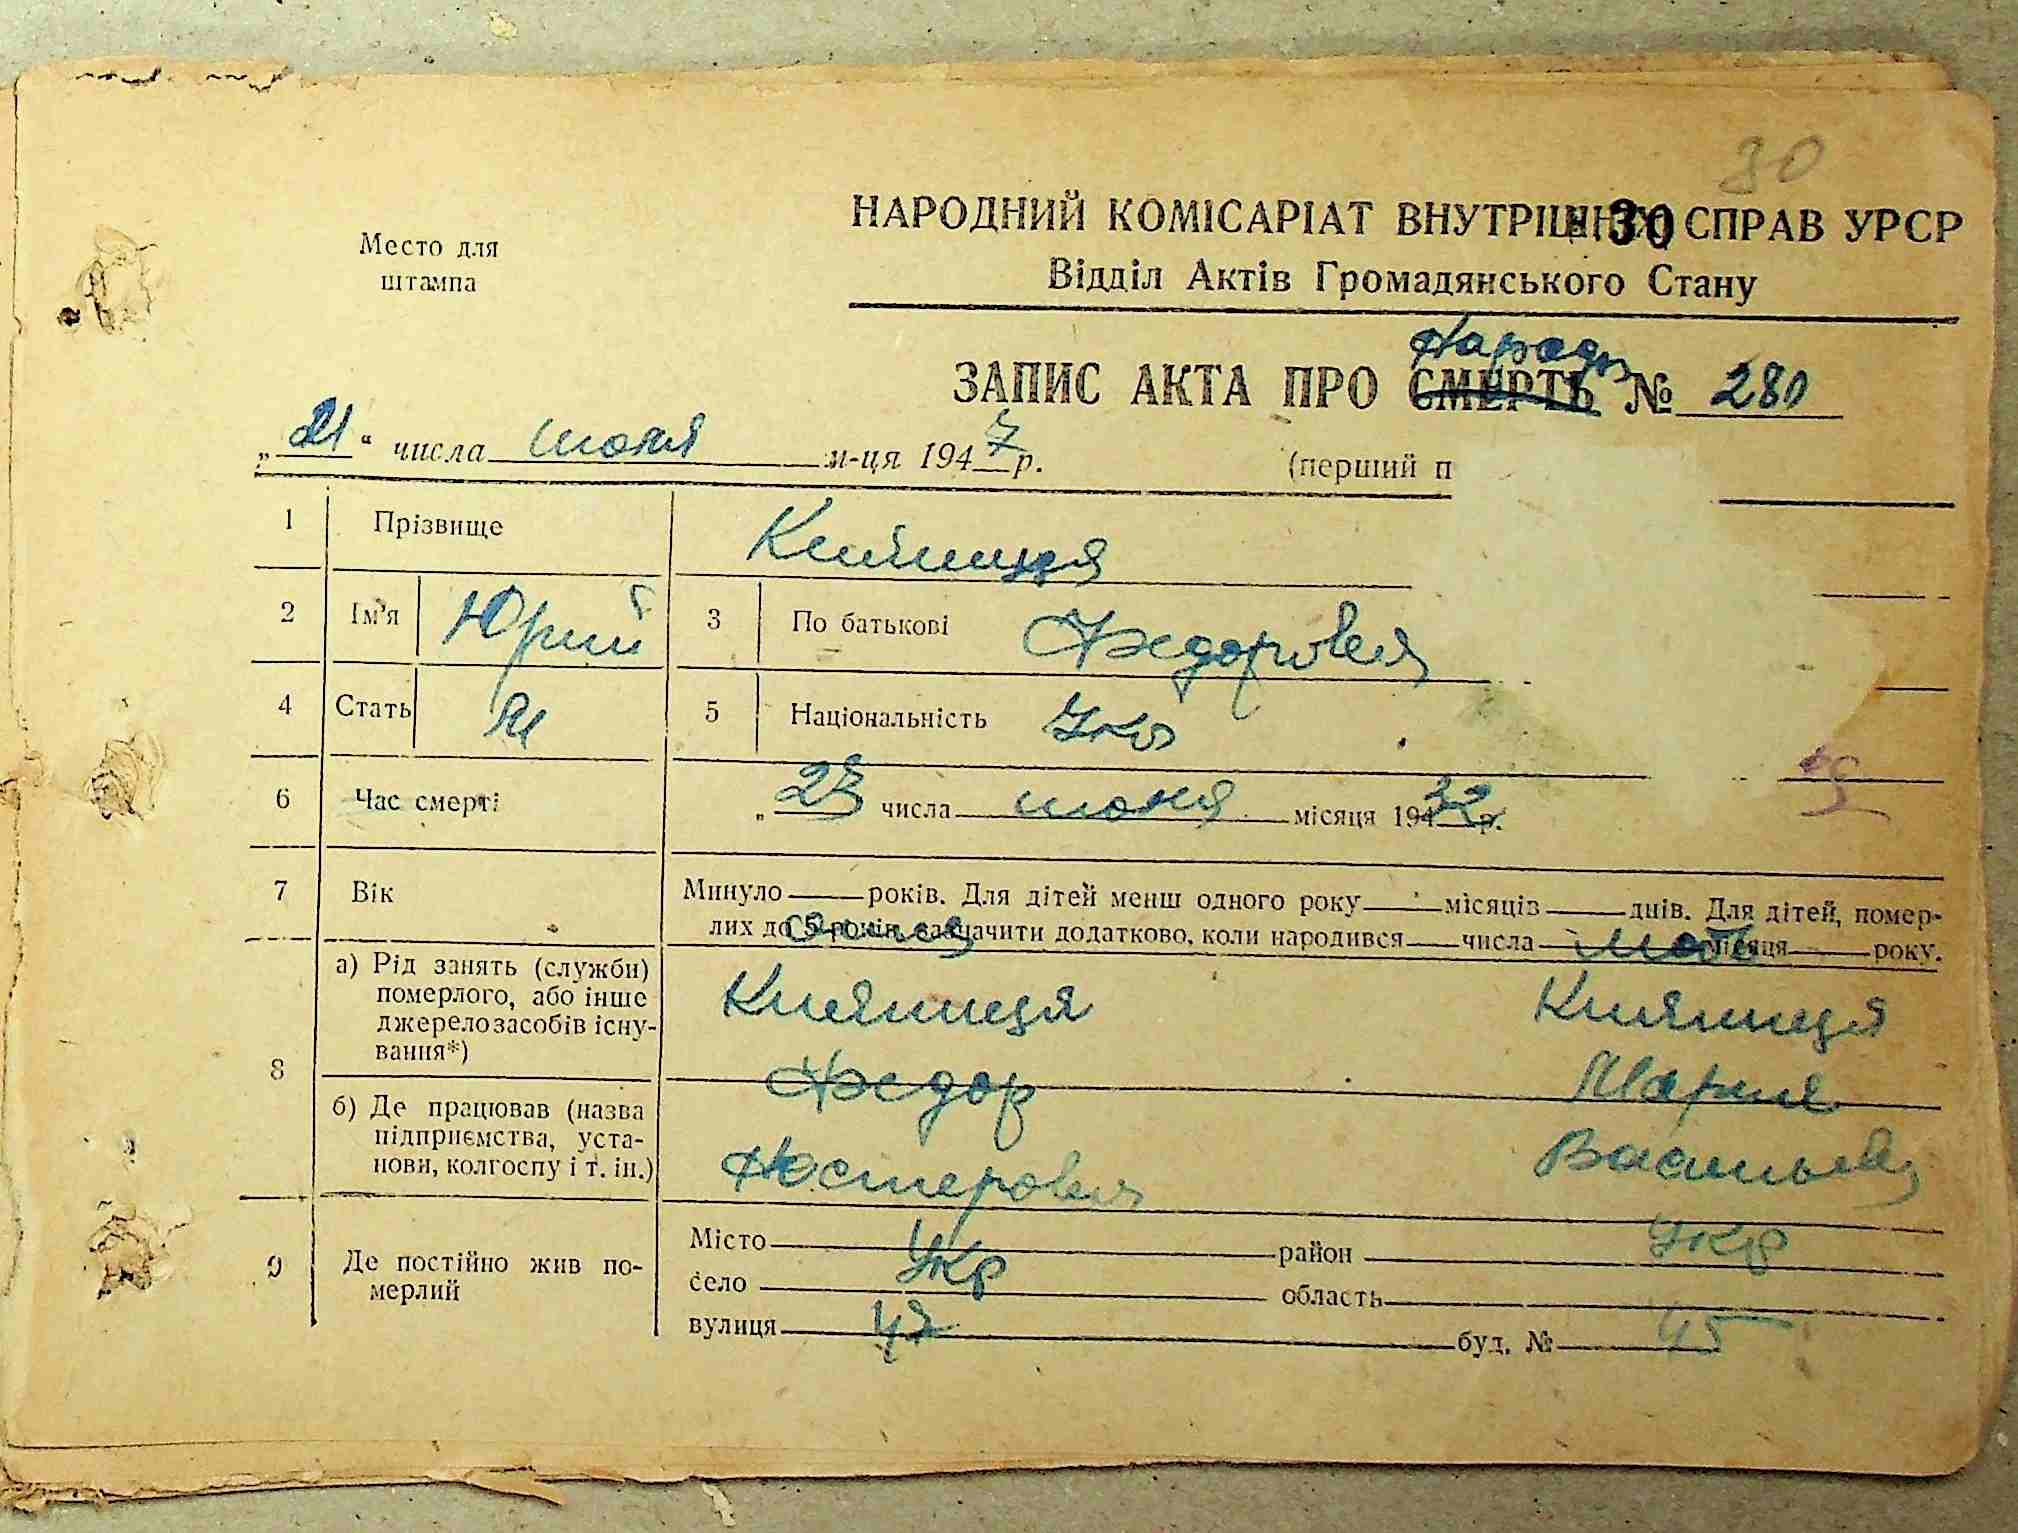 30
НАРОДНИЙ КОМІСАРІАТ ВНУТРІШНІХ СПРАВ УРСР
30
Место для
штампа
Відділ Актів Громадянського Стану
Народж
ЗАПИС АКТА ПРО СМЕРТЬ № 280
„21“ числа июня м-ця 1947 р. (перший п
1 Прізвище Кияниця
2 Ім'я Юрий 3 По батькові Федорович
4 Стать М 5 Національність Укр
6 Час смерті „27 числа июня місяця 1932 р.
7 Вік Минуло років. Для дітей менш одного року місяців днів. Для дітей, помер-
лих до 5 років, зазначити додатково, коли народився числа місяця року.
отец мать
8 а) Рід занять (служби)
померлого, або інше
джерело засобів існу-
вання*)
Кияниця Кияниця
Федор Мария
б) Де працював (назва
підприємства, уста-
нови, колгоспу і т. ін.)
Нестерович Васильев
9 Де постійно жив по-
мерлий
Місто район
Укр Укр
село область
вулиця 47 буд. № 45